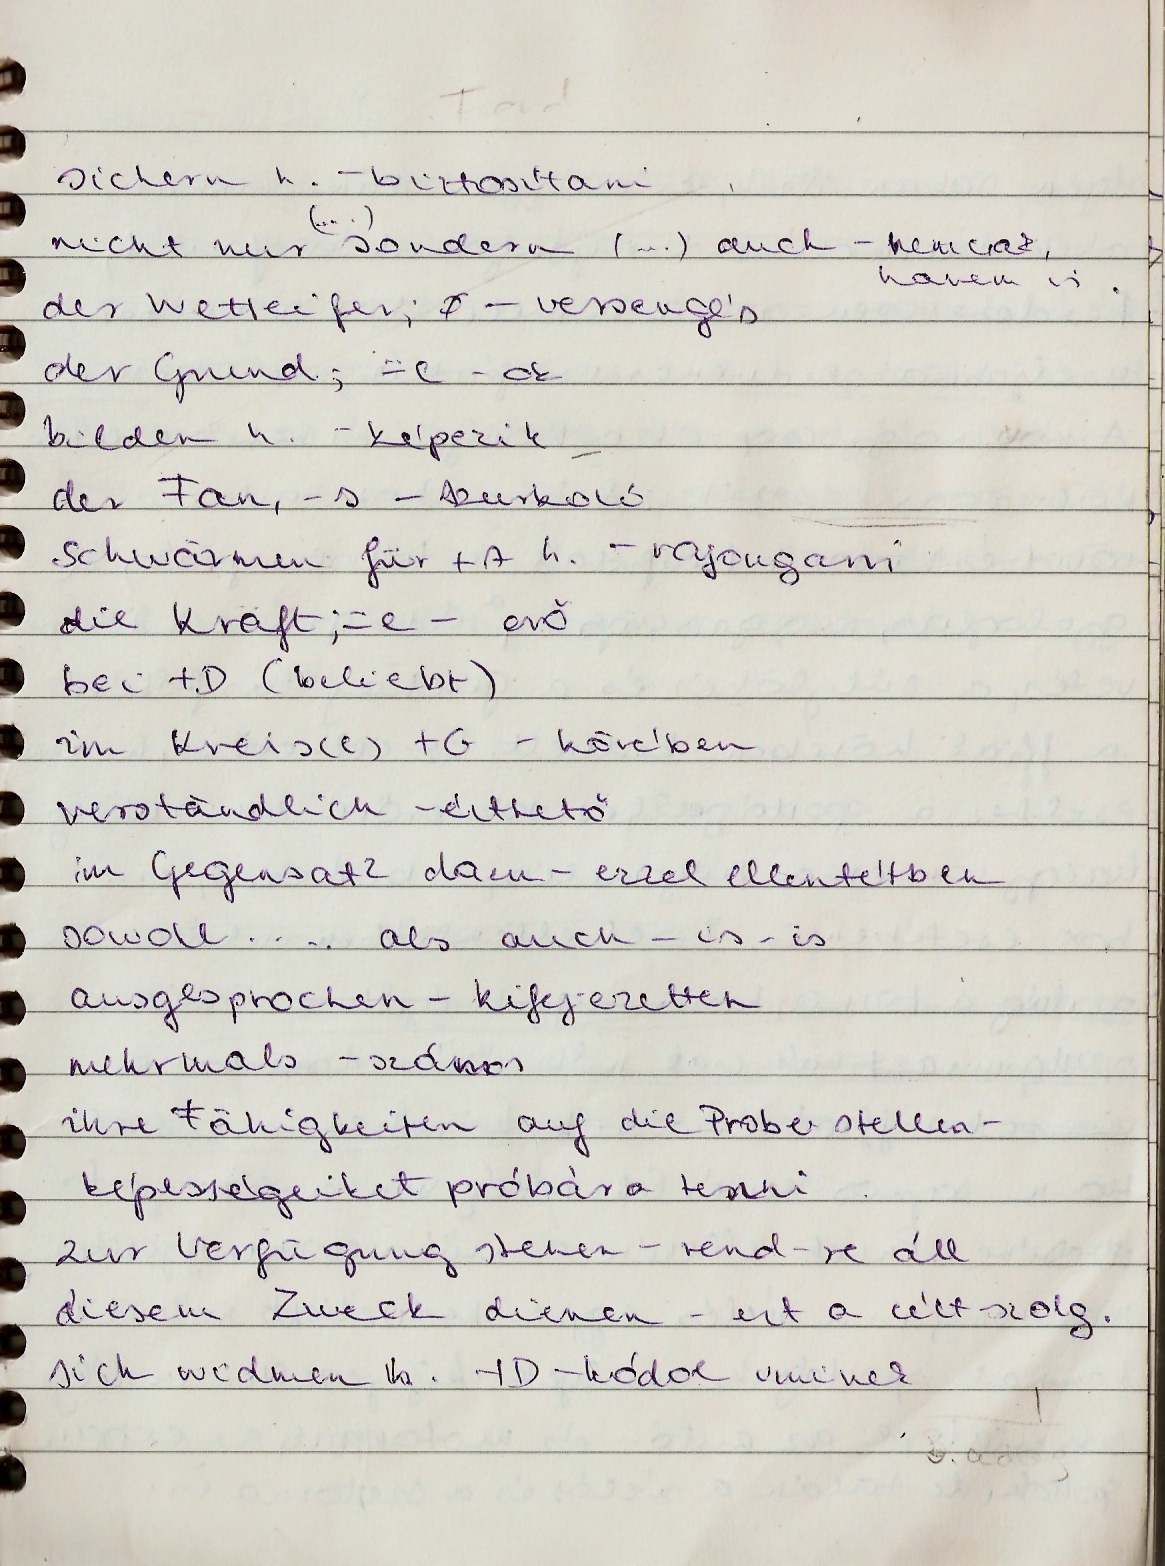 sichern h. - biztosítani
nicht nur (...) sondern (...) auch - nemcsak,
hanem is.
der Wetteifer; ø - versengés
der Grund; ⸚e - ok
bilden h. - képezik
der Fan, -s - szurkoló
schwärmen für +A h. - rajongani
die Kraft; ⸚e - erő
bei +D (beliebt)
im Kreis(e) +G - körében
verständlich - érthető
im Gegensatz dazu - ezzel ellentétben
sowohl .... als auch - is - is
ausgesprochen - kifejezetten
mehrmals - számos
ihre Fähigkeiten auf die Probe stellen -
képességeiket próbára tenni
zur Verfügung stehen - rend-re áll
diesem Zweck dienen - ezt a célt szolg.
sich widmen h. +D - hódol vminek